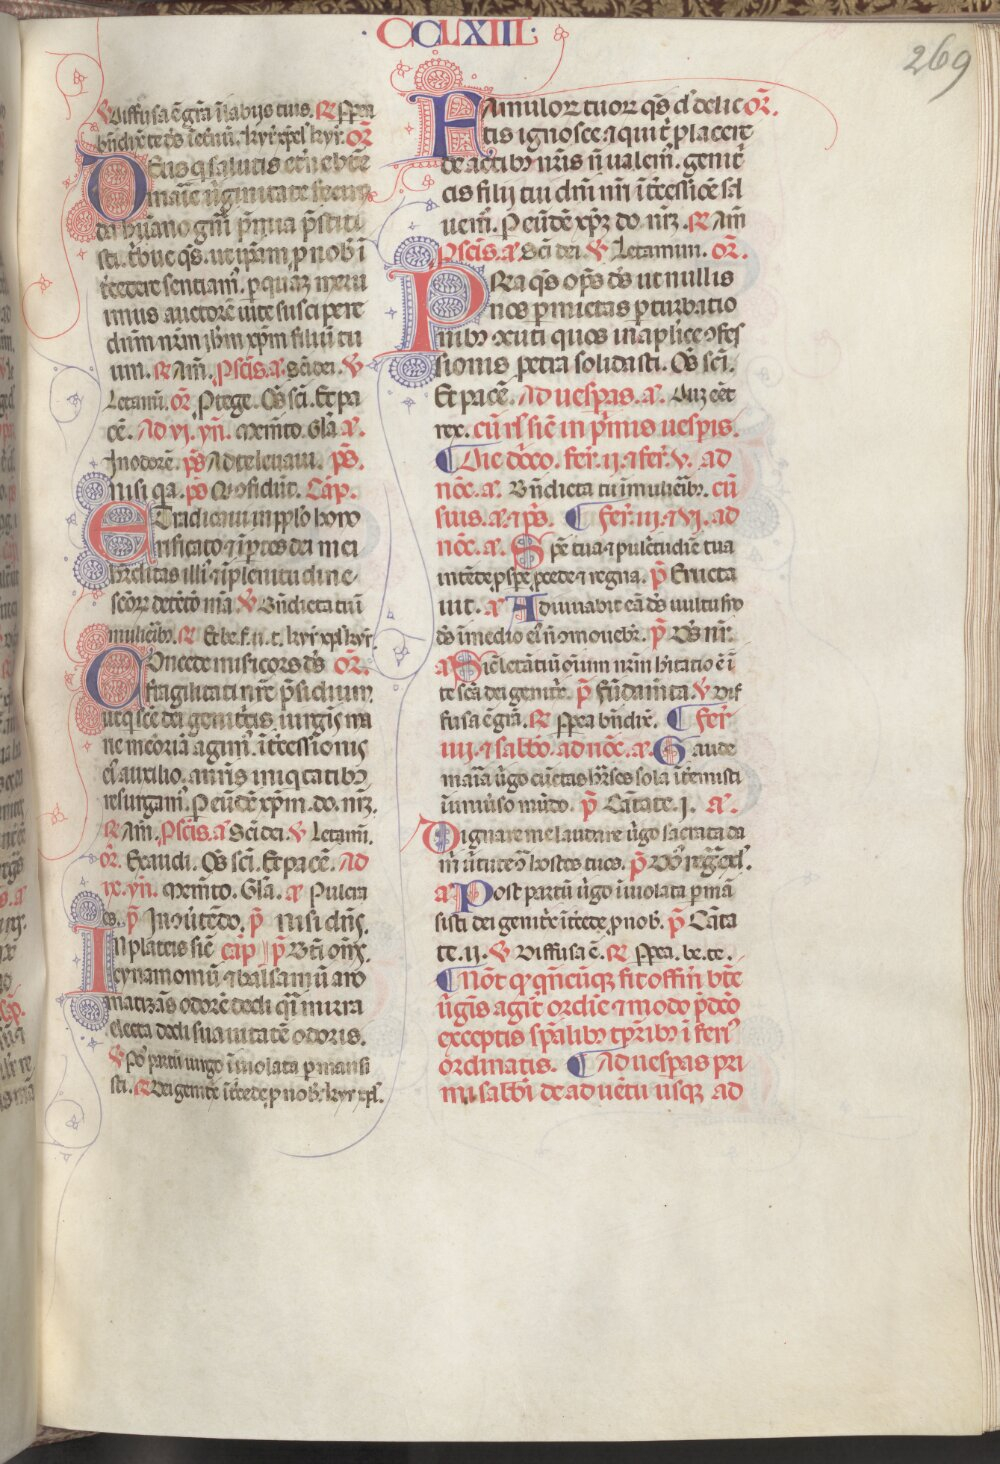 ·CCLXIII·
269
℣ Diffusa ē grā ī labijs tuis. ℟ Pp̄ea
bn̄dix̄ te ds̄ ī et̄nū. kyr̄ xp̄el kyr̄. or̄
Deus q̄ salutis et̄ne bt̄e
marie v̄ginitate fecun
da humano gn̄i p̄mia p̄stiti
sti. t̄bue qs̄. ut ip̄am p̄ nob̄ ī
t̄cedere sentiam̄. p̄ quaz meru
imus auctorē uite suscipere
dn̄m nr̄m ih̄m xp̄m filiū tu
um. ℟ Am̄. Ps̄cīs. a. Sc̄i dei. ℣
Letam̄. or̄. Ptege. Os̄ sc̄i. Et pa
cē. Ad vi. yn̄. Mem̄to. Gl̄a a.
In odorē. ps̄ Ad te leuaui. ps̄.
nisi qa. ps̄ Q ofidūt. Cap̄.
Et radicaui in pp̄lo hono
rificato ⁊ ī p̄tes dei mei
hereditas illi ⁊ ī plenitudine
sc̄oꝝ detētō mā ℣ Bn̄dicta tū
ī mulieribꝫ. ℟ Et be. f. u. t. kyr̄ xpl̄ kyr̄.
Concede misericors ds̄ or̄.
fragilitati nr̄e p̄sidium
ut q̄ sc̄e dei genitcis uirgis ma
rie memōriā agim̄. īt̄cessionis
ei̯ auxilio. a nr̄is iniqtatibꝫ
resurgam̄. P eūdē xp̄m. do. nr̄z.
℟ Am̄. Ps̄cīs. a Sc̄i dei ℣ Letam̄.
or̄. Exaudi. Os̄ sc̄i. Et pacē. Ad
ix. yn̄. Mem̄to. Glā. a Pulcra
es. p̄ In cōūtēdo. p̄ nisi dn̄s.
In plateis sic̄ cap̄ p̄ Bt̄i om̄s.
cynamomū ⁊ balsamū aro
matizās odorē dedi q̄i mirra
electa dedi suauitatē odoris.
℣ Pꝰ partū uirgo īuiolata p̄mansi
sti. ℟ Dei genit̄x īt̄cede p̄ nob̄. kyr̄ xpl̄.
Famuloꝝ tuoꝝ qs̄ dn̄e delic or̄.
tis ignosce. ⁊ qui t̄ placere
de actibꝫ nr̄is n̄ ualem̄. genit̄
cis filij tui dn̄i nr̄i īt̄cessiōe sal
uem̄. P eūdē xp̄z do. nr̄z. ℟ Am̄
Ps̄cīs. a Sc̄i dei ℣ Letamini. or̄.
Pra qs̄ op̄s ds̄ ut nullis
nos p̄mictas p̄turbatio
nibꝫ ɔcuti quos in aplice ɔfes
sionis petra solidasti. Os̄ sc̄i.
Et pacē. Ad uesp̄as. a. Duz eēt
rex. cū rl̄ sic̄ in p̄mis uesp̄is.
¶ Die dn̄co. fer̄. ii. ⁊ fer̄. v. ad
noc̄. a. Bn̄dicta tu ī mulieribꝫ. cū
suis. a. ⁊ ps̄. ¶ fer̄. iii. ⁊ vi. ad
noc̄. a. Spē tua ⁊ pulcritudie tua
intēde p̄spe p̄cede ⁊ regna. p̄ Eructa
uit. a Adiuuabit eā ds̄ uultu suo
ds̄ ī medio ei̯ n̄ ɔmouebr̄. p̄ Ds̄ nr̄.
a Sic̄ letātiū oīum nr̄m hītatio ē ī
te sc̄ā dei genit̄x. p̄ fūdam̄ta. ℣ Dif
fusa ē grā. ℟ Ppr̄ea bn̄dix̄. ¶ fer̄
iiii. ⁊ sabbō. ad noc̄. a. Gaude
maria v̄go cūctas hr̄ses sola īt̄emisti
ī uniūso mūdo. p̄ Cātate. i. a.
Dignare me laudare v̄go sacrata da
m̄ v̄tutē ɔ̄ hostes tuos. p̄ Dn̄s rḡ. ex.
a Post partū v̄go īuiolata p̄mā
sisti dei genit̄x īt̄cede p̄ nob. p̄ Cāta
te. ii. ℣ Diffusa ē. ℟ Ppr̄ea. be. te.
¶ Not̄ q̄ qn̄cūqꝫ fit offm̄ bt̄e
v̄gis agit̄ ordie ⁊ modo p̄dc̄o
exceptis sp̄alibꝫ tp̄ribꝫ ī feriis
ordinatis. ¶ Ad uesp̄as pri
mi sabbi de aduētu usqꝫ ad